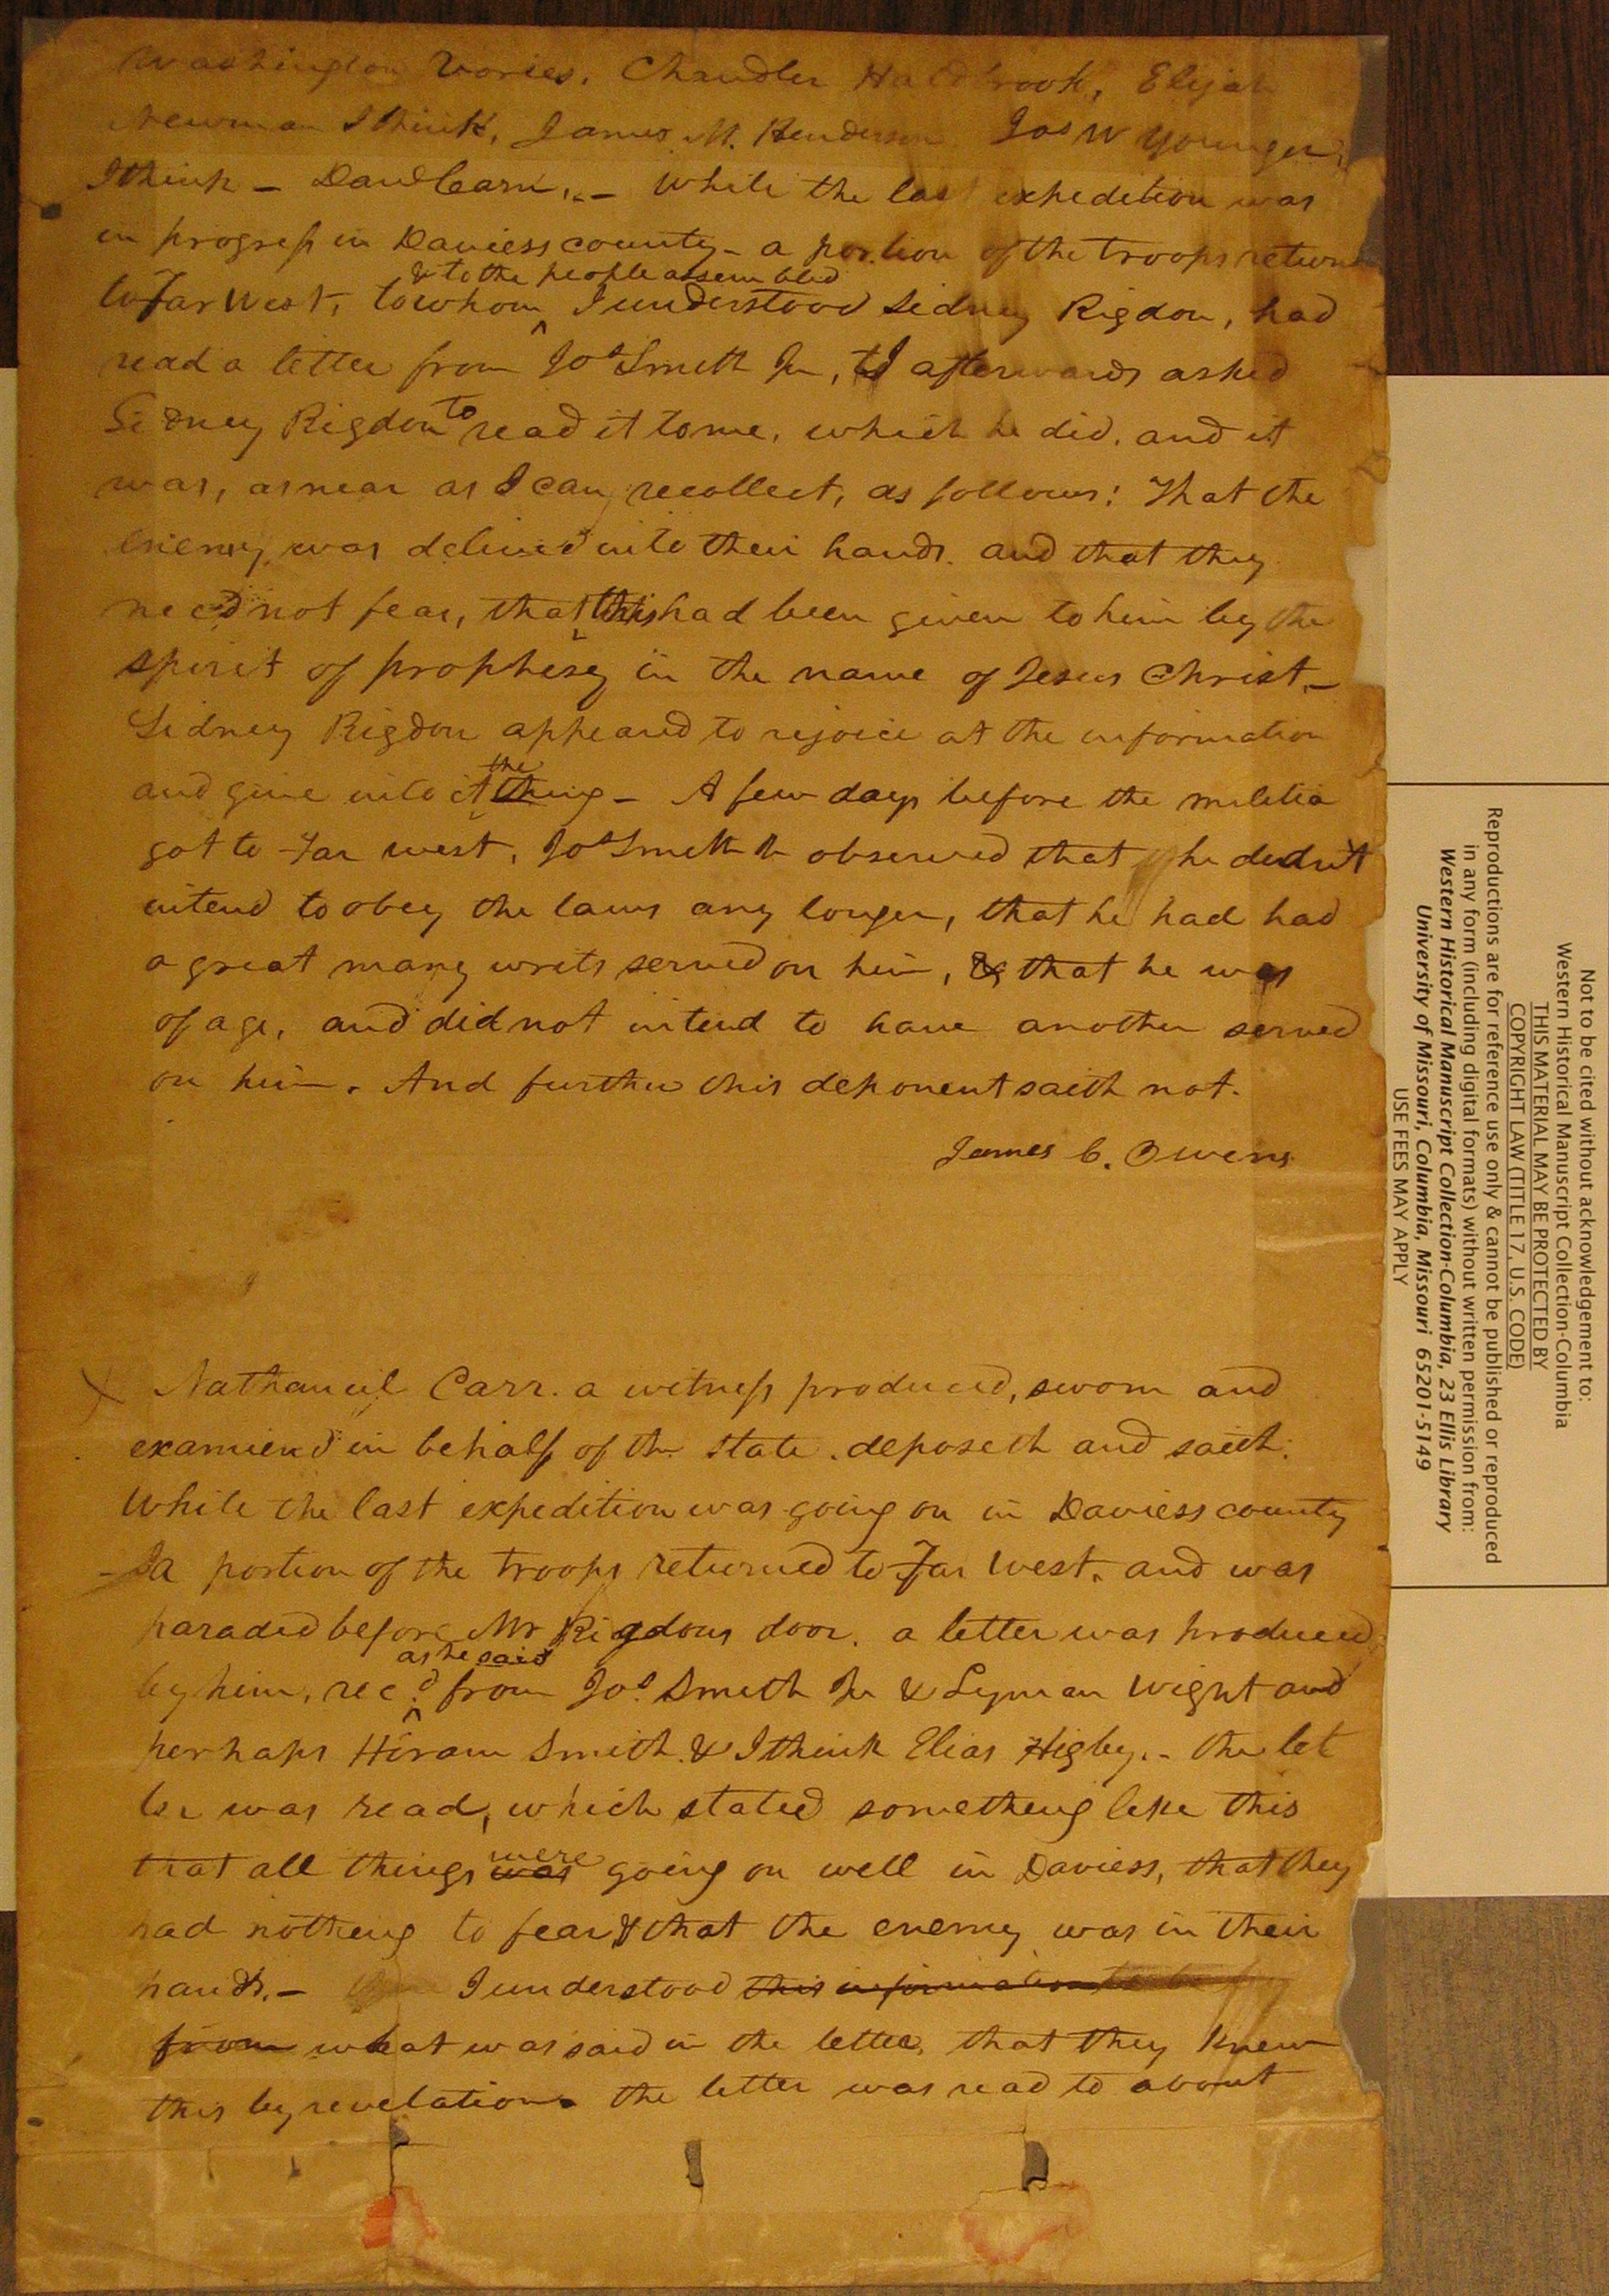 Washington Vories, Chandler Holdbrook, Elijah
Newman I think, James M. Henderson Jos W Younger,
I think – David Carn, – while the last expedition was
in progress in Daviess county – a portion of the troops return
& to the people assembled
to Far West, to whom ^ I understood Sidney Rigdon, had
read a letter from Jos Smith Jr, & I afterwards asked
Sidney Rigdon to read it to me, which he did, and it
was, as near as I can recollect, as follows: That the
enemy was delivered into their hands. and that they
need not fear, that this had been given to him by the
spirit of prophesy in the name of Jesus Christ. –
Sidney Rigdon appeared to rejoice at the information
the
and give into it thing – A few days before the militia
got to Far west, Jos Smith Jr observed that he didn't
intend to obey the laws any longer, that he had had
a great many writs served on him, & that he was
of age, and did not intend to have another served
on him. And further this deponent saith not.
James C. Owens
X Nathaneil Carr. a witness produced, sworn and
examiend in behalf of the state. deposeth and saith:
While the last expedition was going on in Daviess county
– a portion of the troops returned to Far West. and was
paraded before Mr Rigdons door. a letter was produced
as he said
by him, rec.d ^ from Jos. Smith Jr & Lyman Wight and
perhaps Hiram Smith. & I think Elias Higby. – the let
ter was read, which stated something like this
were
that all things was going on well in Daviess, that they
had nothing to fear & that the enemy was in their
hands. – I understood this information to be
from what was said in the letter, that they knew
this by revelation. the letter was read to about
Not to be cited without acknowledgement to:
Western Historical Manuscript Collection-Columbia
THIS MATERIAL MAY BE PROTECTED BY
COPYRIGHT LAW (TITLE 17, U.S. CODE)
Reproductions are for reference use only & cannot be published or reproduced
in any form (including digital formats) without written permission from:
Western Historical Manuscript Collection-Columbia, 23 Ellis Library
University of Missouri, Columbia, Missouri 65201-5149
USE FEES MAY APPLY